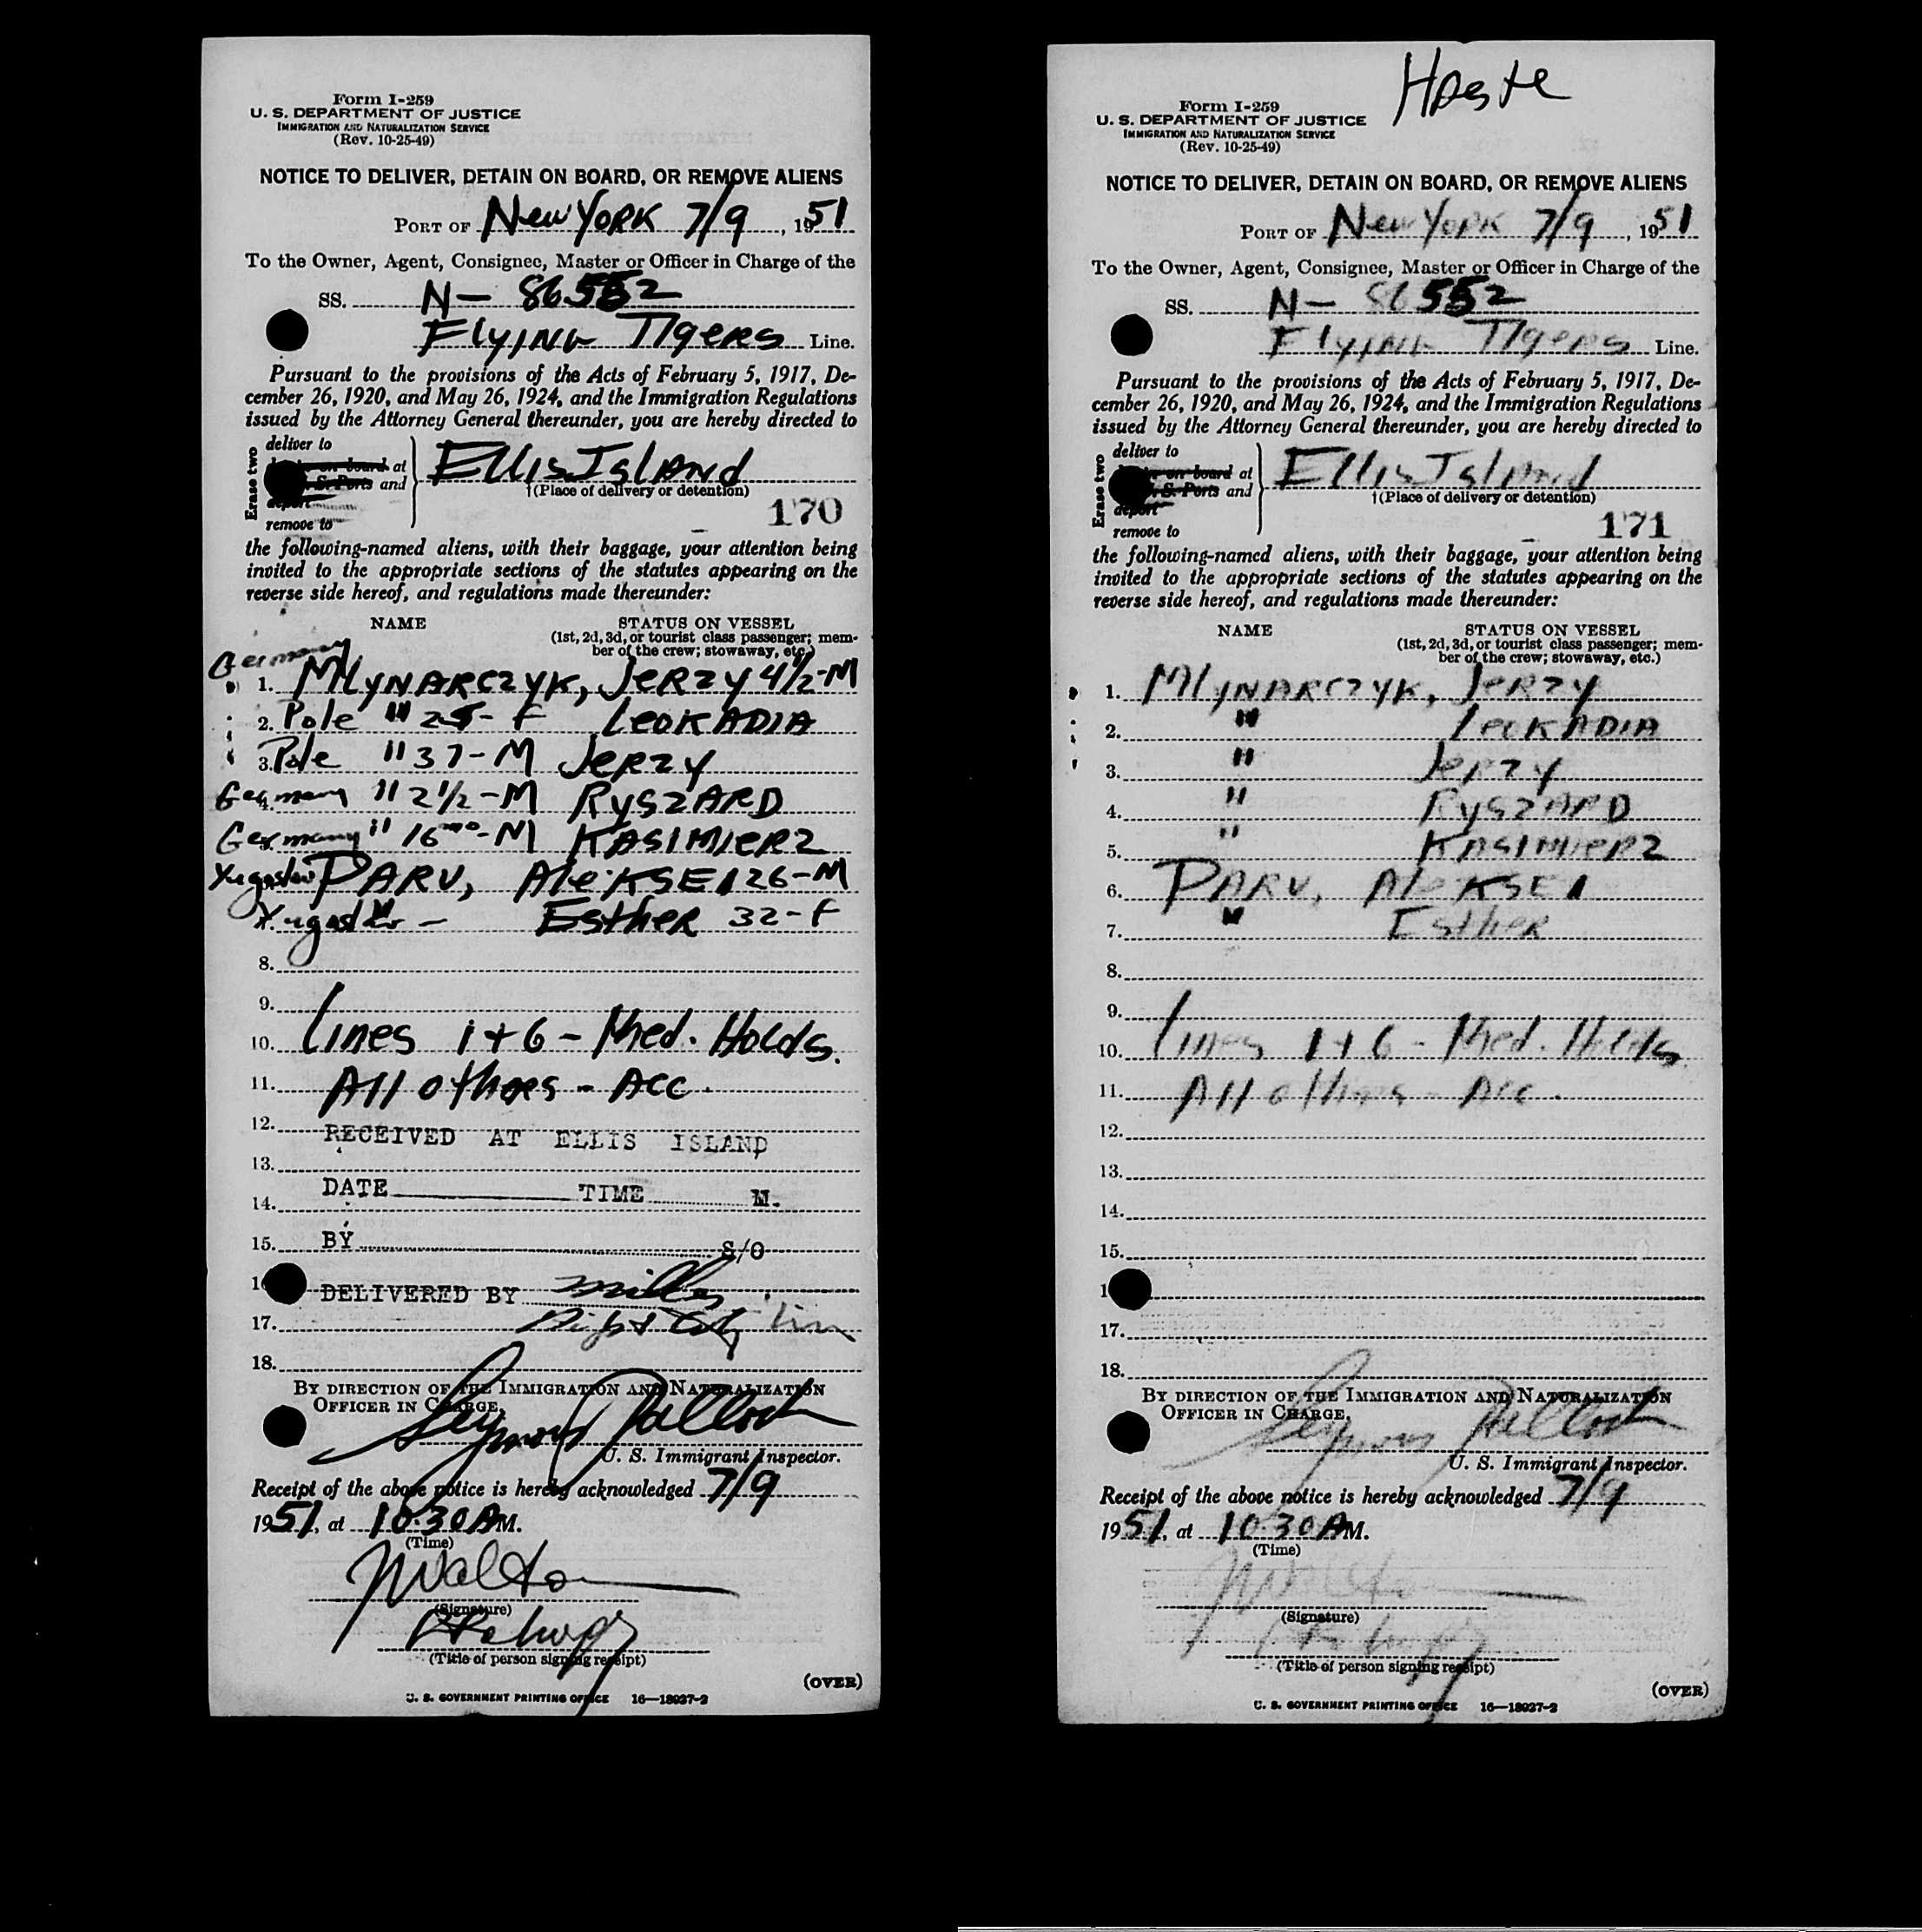 Form I-259
U. S. DEPARTMENT OF JUSTICE
IMMIGRATION AND NATURALIZATION SERVICE
(Rev. 10-25-49)
NOTICE TO DELIVER, DETAIN ON BOARD, OR REMOVE ALIENS
PORT OF New York 7/9, 1951
To the Owner, Agent, Consignee, Master or Officer in Charge of the
SS. N- 86552
Flying Tigers Line.
Pursuant to the provisions of the Acts of February 5, 1917, De-
cember 26, 1920, and May 26, 1924, and the Immigration Regulations
issued by the Attorney General thereunder, you are hereby directed to
Erase two
deliver to
on board at
S. Ports and
deport
remove to
Ellis Island
†(Place of delivery or detention)
170
the following-named aliens, with their baggage, your attention being
invited to the appropriate sections of the statutes appearing on the
reverse side hereof, and regulations made thereunder:
NAME STATUS ON VESSEL
(1st, 2d, 3d, or tourist class passenger; mem-
ber of the crew; stowaway, etc.)
Germany
1. MLYNARCZYK, JERZY 4½-M
2. Pole " 25-F LEOKADIA
3. Pole " 37-M JERZY
Germany " 2½-M RYSZARD
Germany " 16mo-M KASIMIERZ
Yugoslav PARV, ALEKSEI 26-M
Yugoslav " - ESTHER 32-F
8.
9.
10. Lines 1+6 - Med. Holds.
11. All others - Acc.
12. RECEIVED AT ELLIS ISLAND
13.
14. DATE TIME M.
15. BY S/O
16 DELIVERED BY
17.
18.
BY DIRECTION OF THE IMMIGRATION AND NATURALIZATION
OFFICER IN CHARGE,
Seymour Pollock
U. S. Immigrant Inspector.
Receipt of the above notice is hereby acknowledged 7/9
1951, at 10:30 AM.
(Time)
Walton
(Signature)
(Title of person signing receipt)
(OVER)
U. S. GOVERNMENT PRINTING OFFICE 16—18927-2
Haste
Form I-259
U. S. DEPARTMENT OF JUSTICE
IMMIGRATION AND NATURALIZATION SERVICE
(Rev. 10-25-49)
NOTICE TO DELIVER, DETAIN ON BOARD, OR REMOVE ALIENS
PORT OF New York 7/9, 1951
To the Owner, Agent, Consignee, Master or Officer in Charge of the
SS. N- 86552
Flying Tigers Line.
Pursuant to the provisions of the Acts of February 5, 1917, De-
cember 26, 1920, and May 26, 1924, and the Immigration Regulations
issued by the Attorney General thereunder, you are hereby directed to
Erase two
deliver to
on board at
S. Ports and
deport
remove to
Ellis Island
†(Place of delivery or detention)
171
the following-named aliens, with their baggage, your attention being
invited to the appropriate sections of the statutes appearing on the
reverse side hereof, and regulations made thereunder:
NAME STATUS ON VESSEL
(1st, 2d, 3d, or tourist class passenger; mem-
ber of the crew; stowaway, etc.)
1. MLYNARCZYK, JERZY
2. " LEOKADIA
3. " JERZY
4. " RYSZARD
5. " KASIMIERZ
6. PARV, ALEKSEI
7. " ESTHER
8.
9.
10. Lines 1+6 - Med. Holds
11. All others - Acc.
12.
13.
14.
15.
1
17.
18.
BY DIRECTION OF THE IMMIGRATION AND NATURALIZATION
OFFICER IN CHARGE,
Seymour Pollock
U. S. Immigrant Inspector.
Receipt of the above notice is hereby acknowledged 7/9
1951, at 10:30 AM.
(Time)
Walton
(Signature)
(Title of person signing receipt)
(OVER)
U. S. GOVERNMENT PRINTING OFFICE 16—18927-2